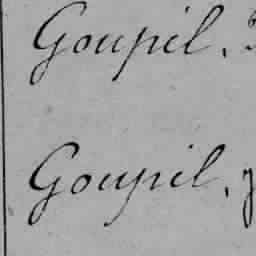 Goupil,
Goupil,